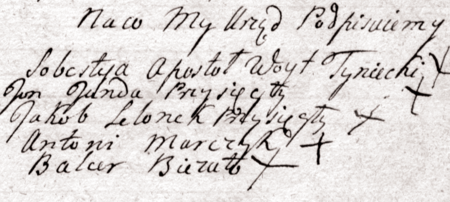 Naco My Urząd Podpisuiemy
Sobestyan Apostoł Woyt Tyniecki X
Jan Janda Przysięzły X
Jakob Lelonek Przysięzły X
Antoni Marczyk X
Balcer Bierato X